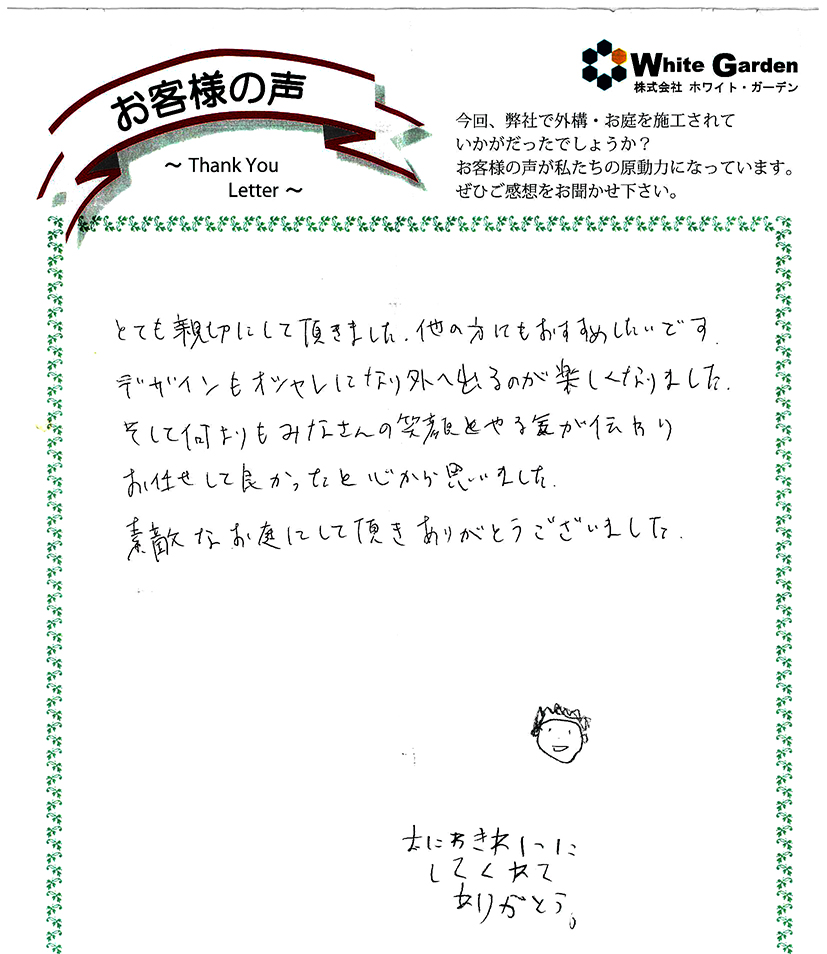 お客様の声
～ Thank You
Letter ～
White Garden
株式会社 ホワイト・ガーデン
今回、弊社で外構・お庭を施工されて
いかがだったでしょうか？
お客様の声が私たちの原動力になっています。
ぜひご感想をお聞かせ下さい。
とても親切にして頂きました。他の方にもおすすめしたいです。
デザインもオシャレになり外へ出るのが楽しくなりました。
そして何よりもみなさんの笑顔とやる気が伝わり
お任せして良かったと心から思いました。
素敵なお庭にして頂きありがとうございました。
おにわきれいに
してくれて
ありがとう。